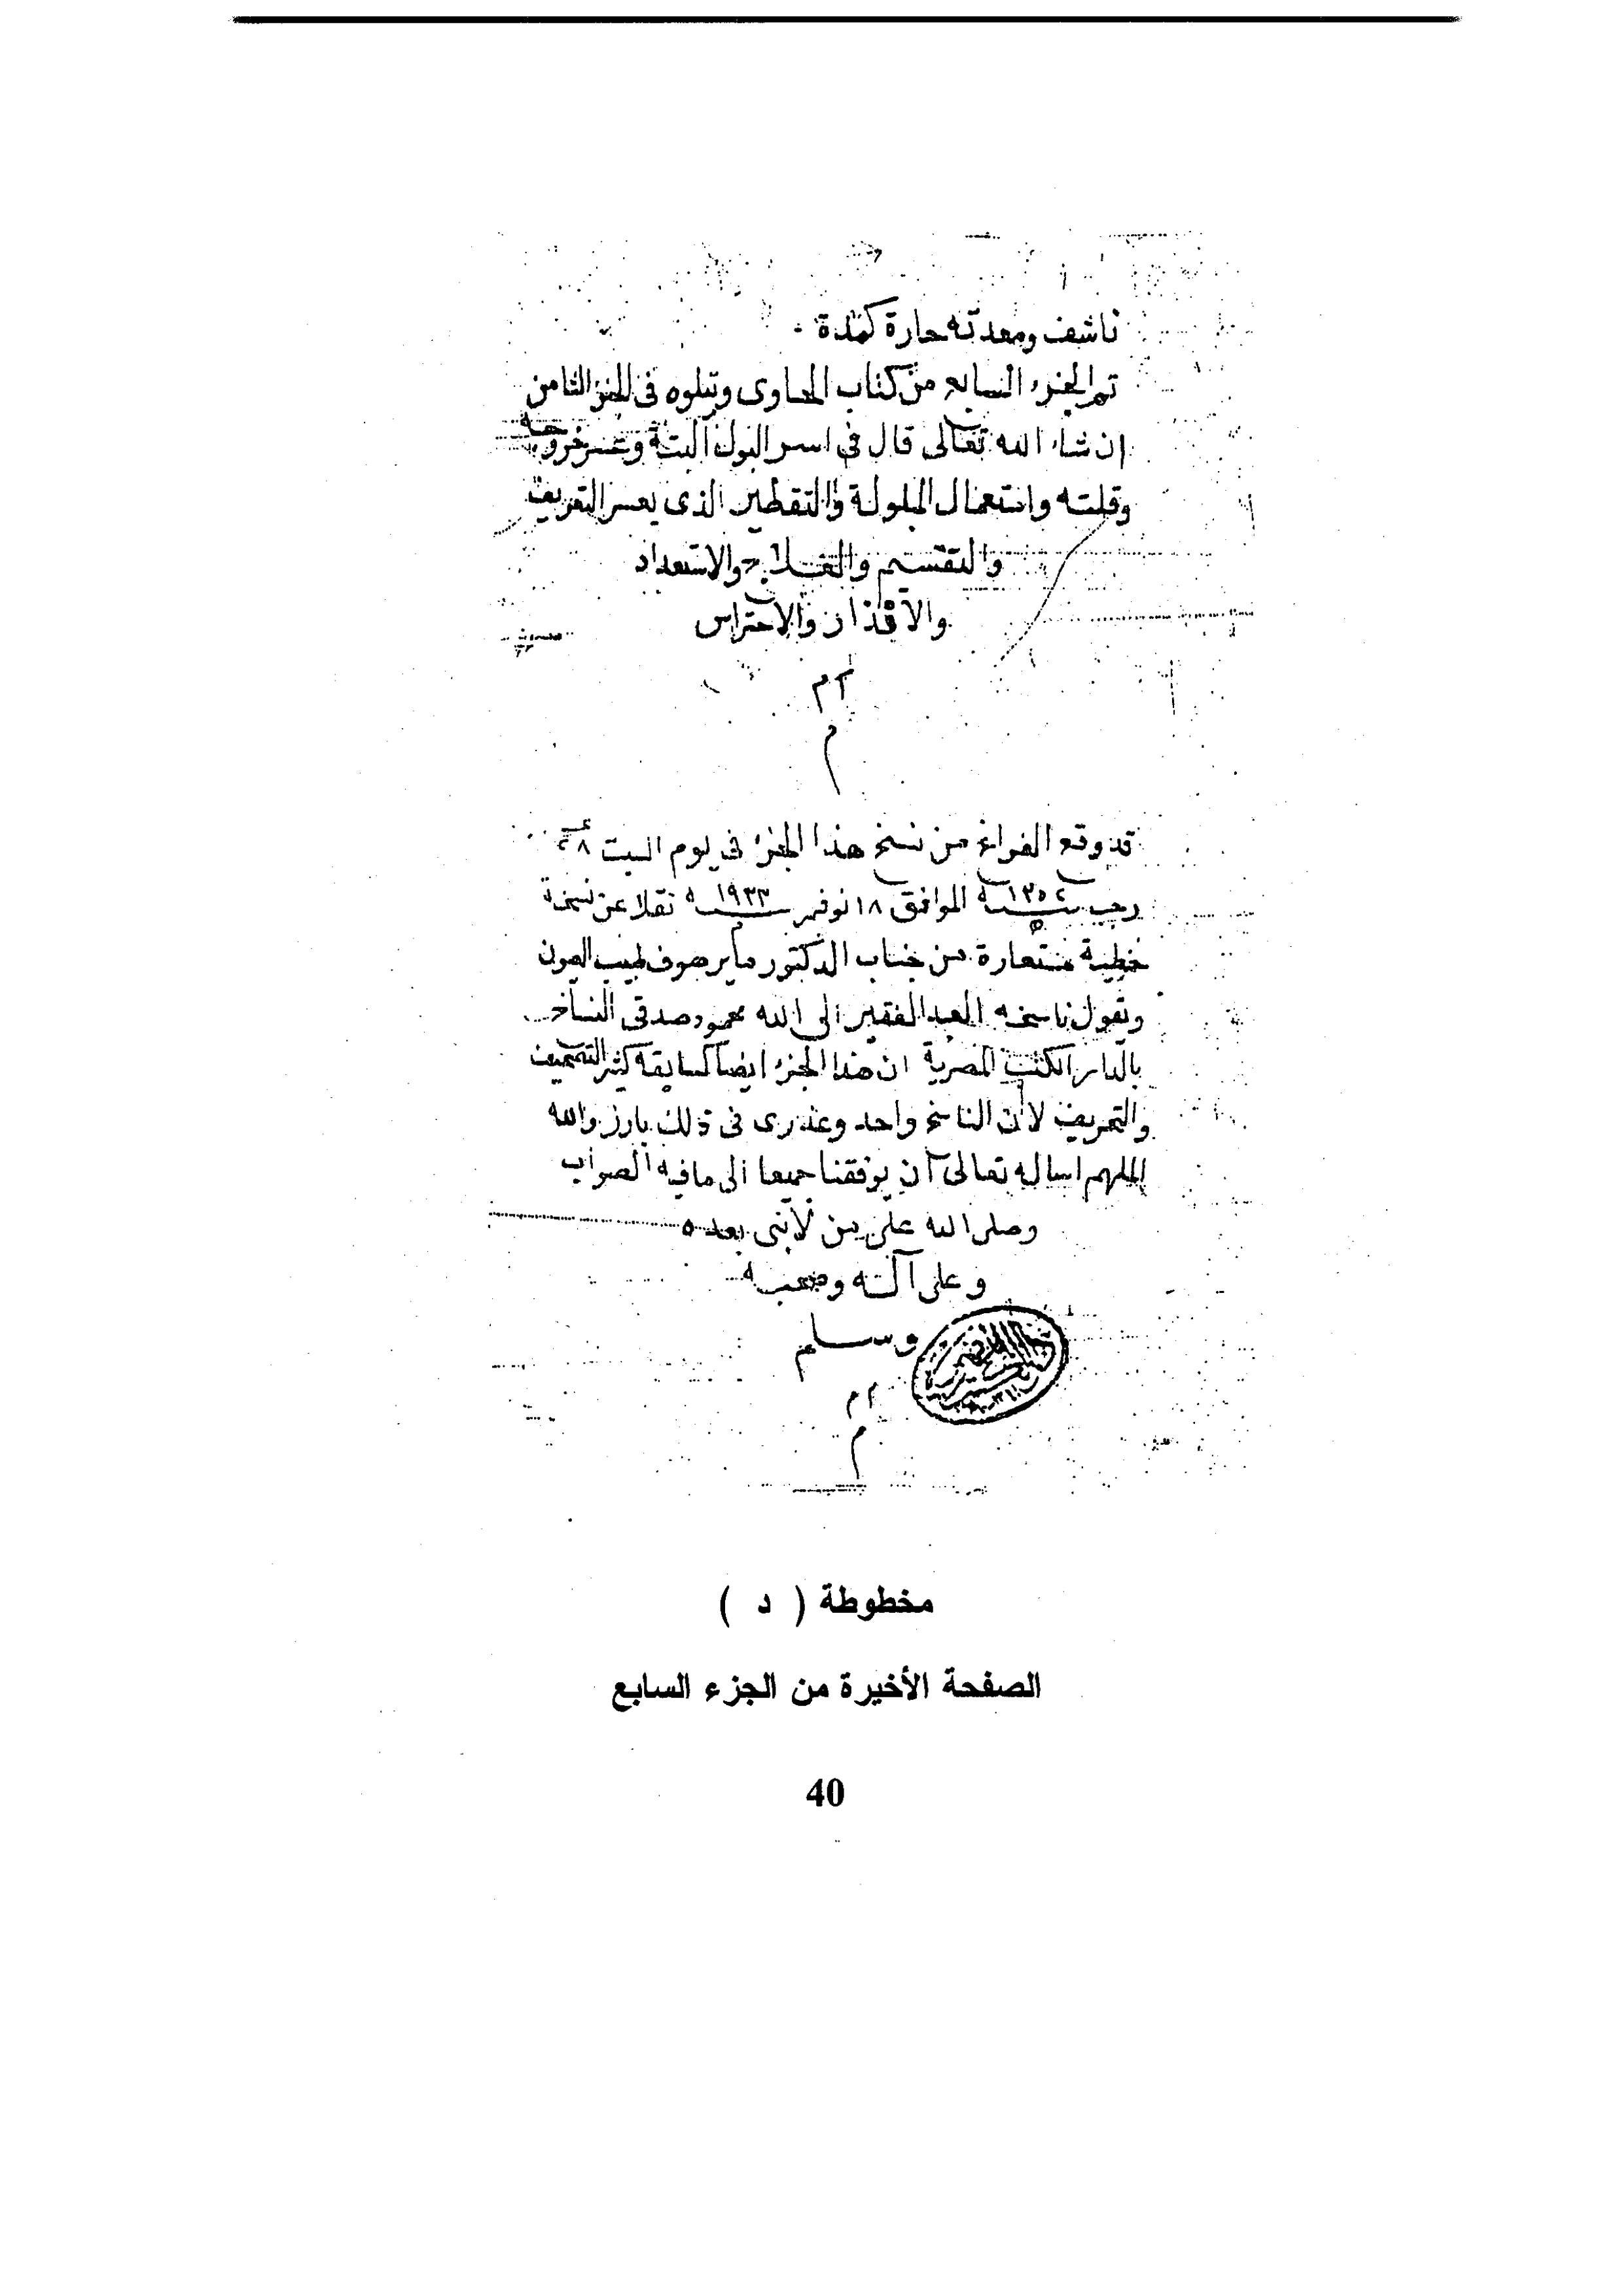 ناشف ومعدته حارة كمدة
تم الجزء السابع من كتاب الحاوى ويتلوه فى الجزء الثامن
ان شاء الله تعالى قال فى اسر البول البتة وعسر خروجه
وقلته واستعمال المبولة والتقطير الذى يعسر التعريف
والتقسيم والعلاج والاستعداد
والاقذار والاحتراس
ام
م
قد وقع الفراغ من نسخ هذا الجزء فى يوم السبت ٢٨
رجب سنة ١٣٥٢ه الموافق ١٨ نوفمبر سنة ١٩٣٣ه نقلا عن نسخة
خطية مستعارة من جناب الدكتور مايرهوف طبيب العيون
ويقول ناسخه العبد الفقير الى الله محمود صدقى النساخ
بالدار الكتب المصرية ان هذا الجزء ايضا كسابقه كثير التصحيف
والتحريف لأن الناسخ واحد وعذرى فى ذلك بارز والله
الملهم اساله تعالى أن يوفقنا جميعا الى ما فيه الصواب
وصلى الله على من لا نبى بعده
وعلى آله وصحبه
وسلم
ام
م
مخطوطة ( د )
الصفحة الأخيرة من الجزء السابع
40